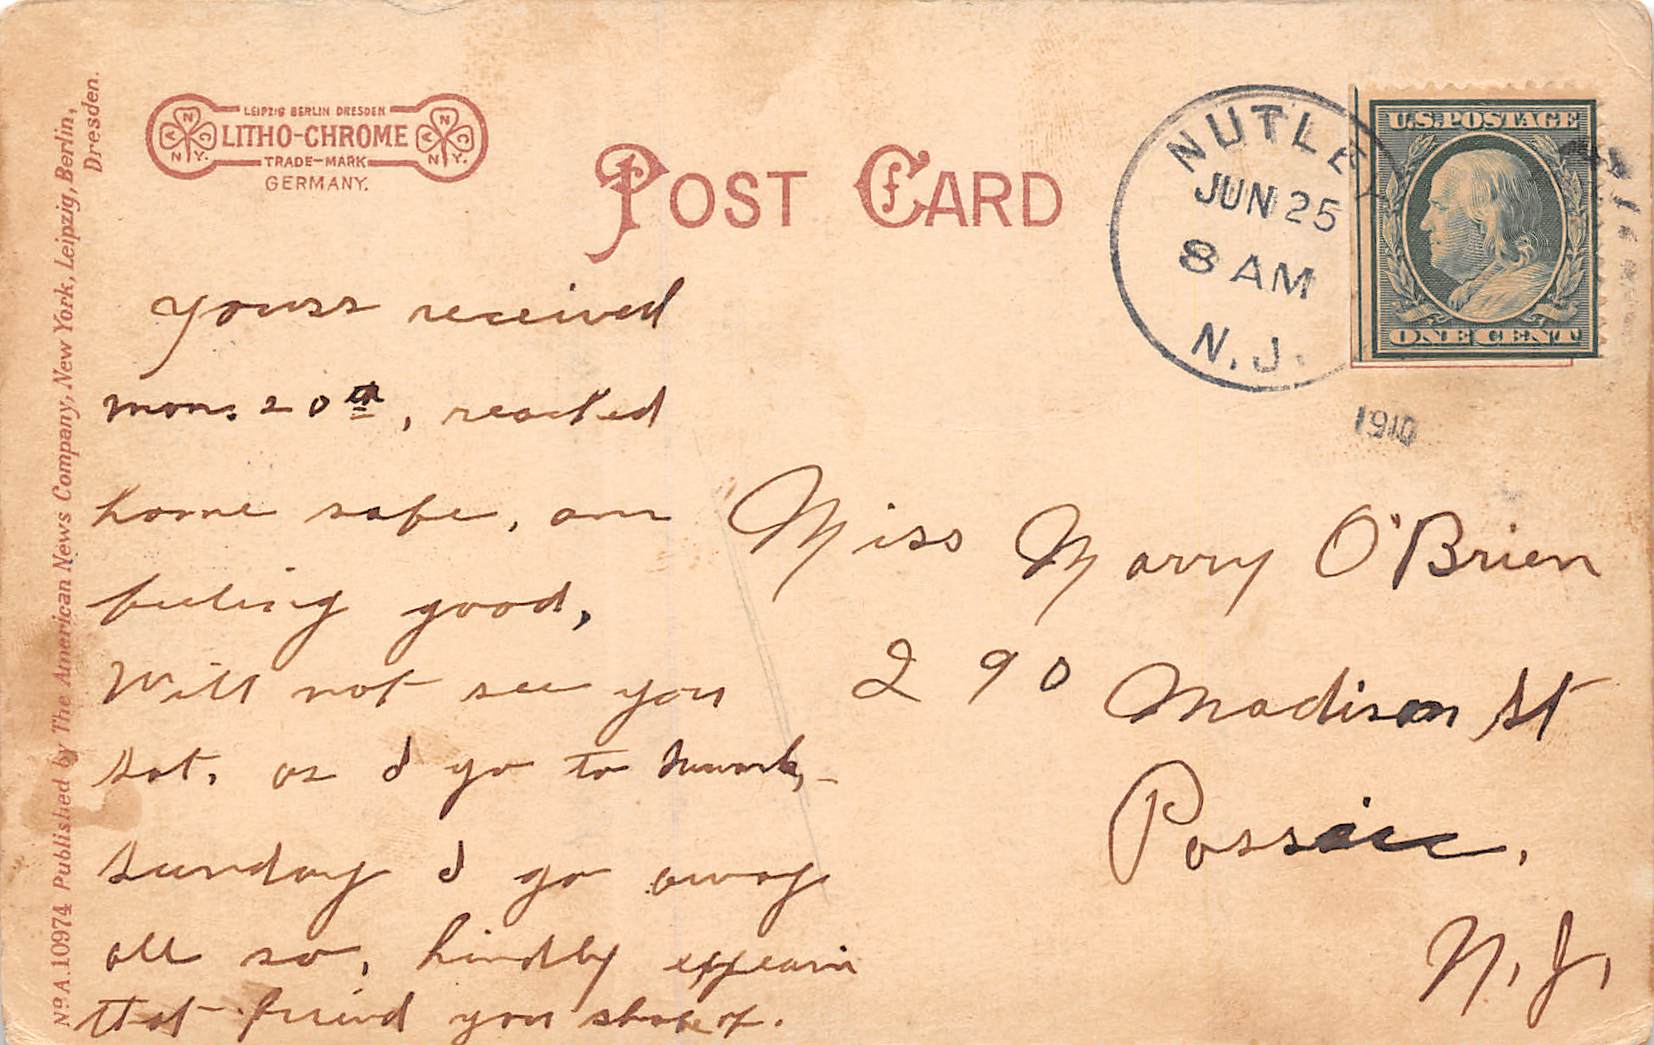 LEIPZIG BERLIN DRESDEN
LITHO-CHROME
TRADE-MARK
GERMANY.
POST CARD
NUTLEY
JUN 25
8 AM
N.J.
1910
U.S. POSTAGE
ONE CENT
No A. 10974 Published by The American News Company, New York, Leipzig, Berlin,
Dresden.
yours received
mon. 20th, reached
home safe, am
feeling good,
Will not see you
Sat. as I go to Newark,-
Sunday I go away
all so, kindly
that friend you
Miss Marry O'Brien
290 Madison St
Passaic,
N. J.